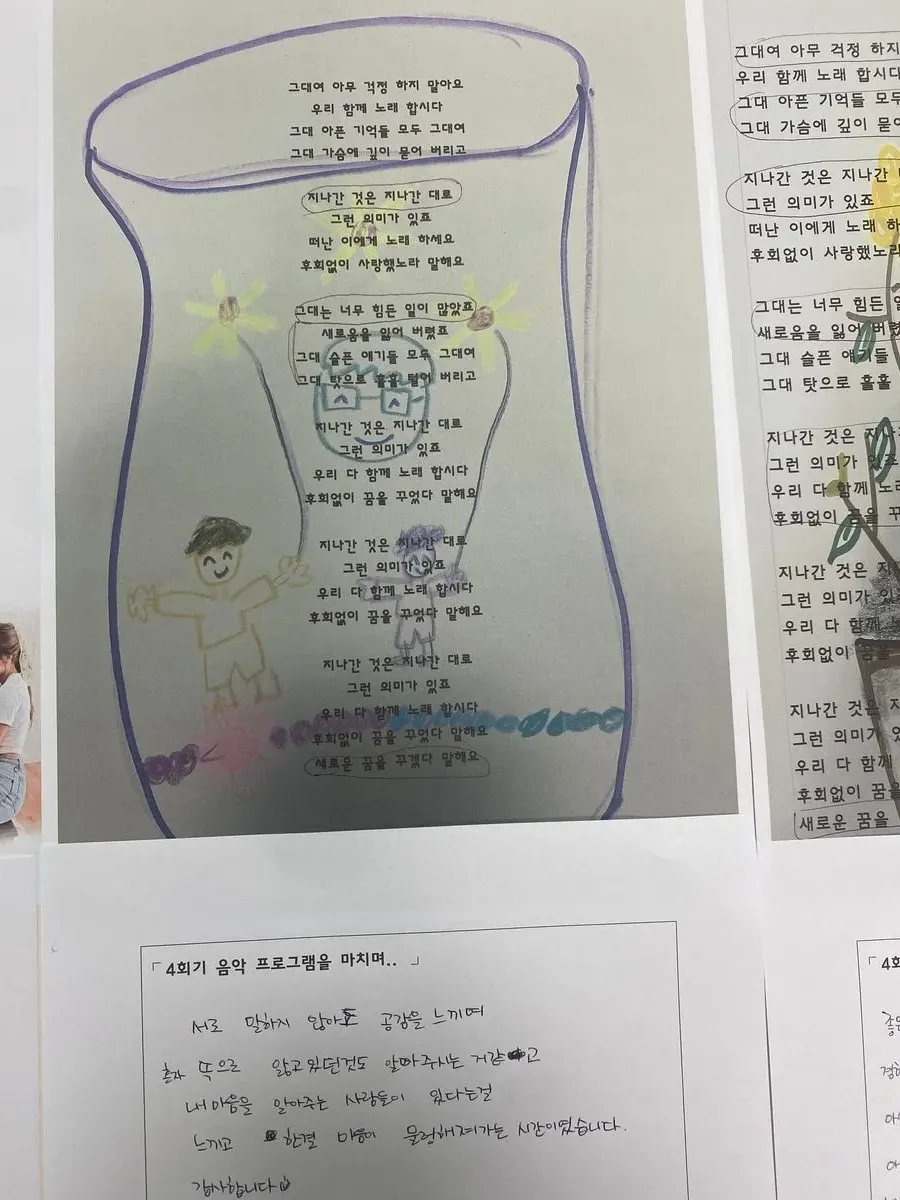 그대여 아무 걱정 하지 말아요
우리 함께 노래 합시다
그대 아픈 기억들 모두 그대여
그대 가슴에 깊이 묻어 버리고
지나간 것은 지나간 대로
그런 의미가 있죠
떠난 이에게 노래 하세요
후회없이 사랑했노라 말해요
그대는 너무 힘든 일이 많았죠
새로움을 잃어 버렸죠
그대 슬픈 얘기들 모두 그대여
그대 탓으로 훌훌 털어 버리고
지나간 것은 지나간 대로
그런 의미가 있죠
우리 다 함께 노래 합시다
후회없이 꿈을 꾸었다 말해요
지나간 것은 지나간 대로
그런 의미가 있죠
우리 다 함께 노래 합시다
후회없이 꿈을 꾸었다 말해요
지나간 것은 지나간 대로
그런 의미가 있죠
우리 다 함께 노래 합시다
후회없이 꿈을 꾸었다 말해요
새로운 꿈을 꾸겠다 말해요
「4회기 음악 프로그램을 마치며.. 」
서로 말하지 않아도 공감을 느끼며
혼자 속으로 앓고 있던것도 알아주시는 거같고
내마음을 알아주는 사람들이 있다는걸
느끼고 한결 마음이 물런해져가는 시간이였습니다.
감사합니다
그대여 아무 걱정 하지
우리 함께 노래 합시다
그대 아픈 기억들 모두
그대 가슴에 깊이 묻어
지나간 것은 지나간
그런 의미가 있죠
떠난 이에게 노래 하
후회없이 사랑했노라
그대는 너무 힘든 일
새로움을 잃어 버렸
그대 슬픈 얘기들
그대 탓으로 훌훌
지나간 것은 지
그런 의미가 있죠
우리 다 함께 노
후회없이 꿈을 꾸
지나간 것은 지
그런 의미가 있
우리 다 함께 노
후회없이 꿈을
지나간 것은 지
그런 의미가 있
우리 다 함께
후회없이 꿈을
새로운 꿈을
「4회